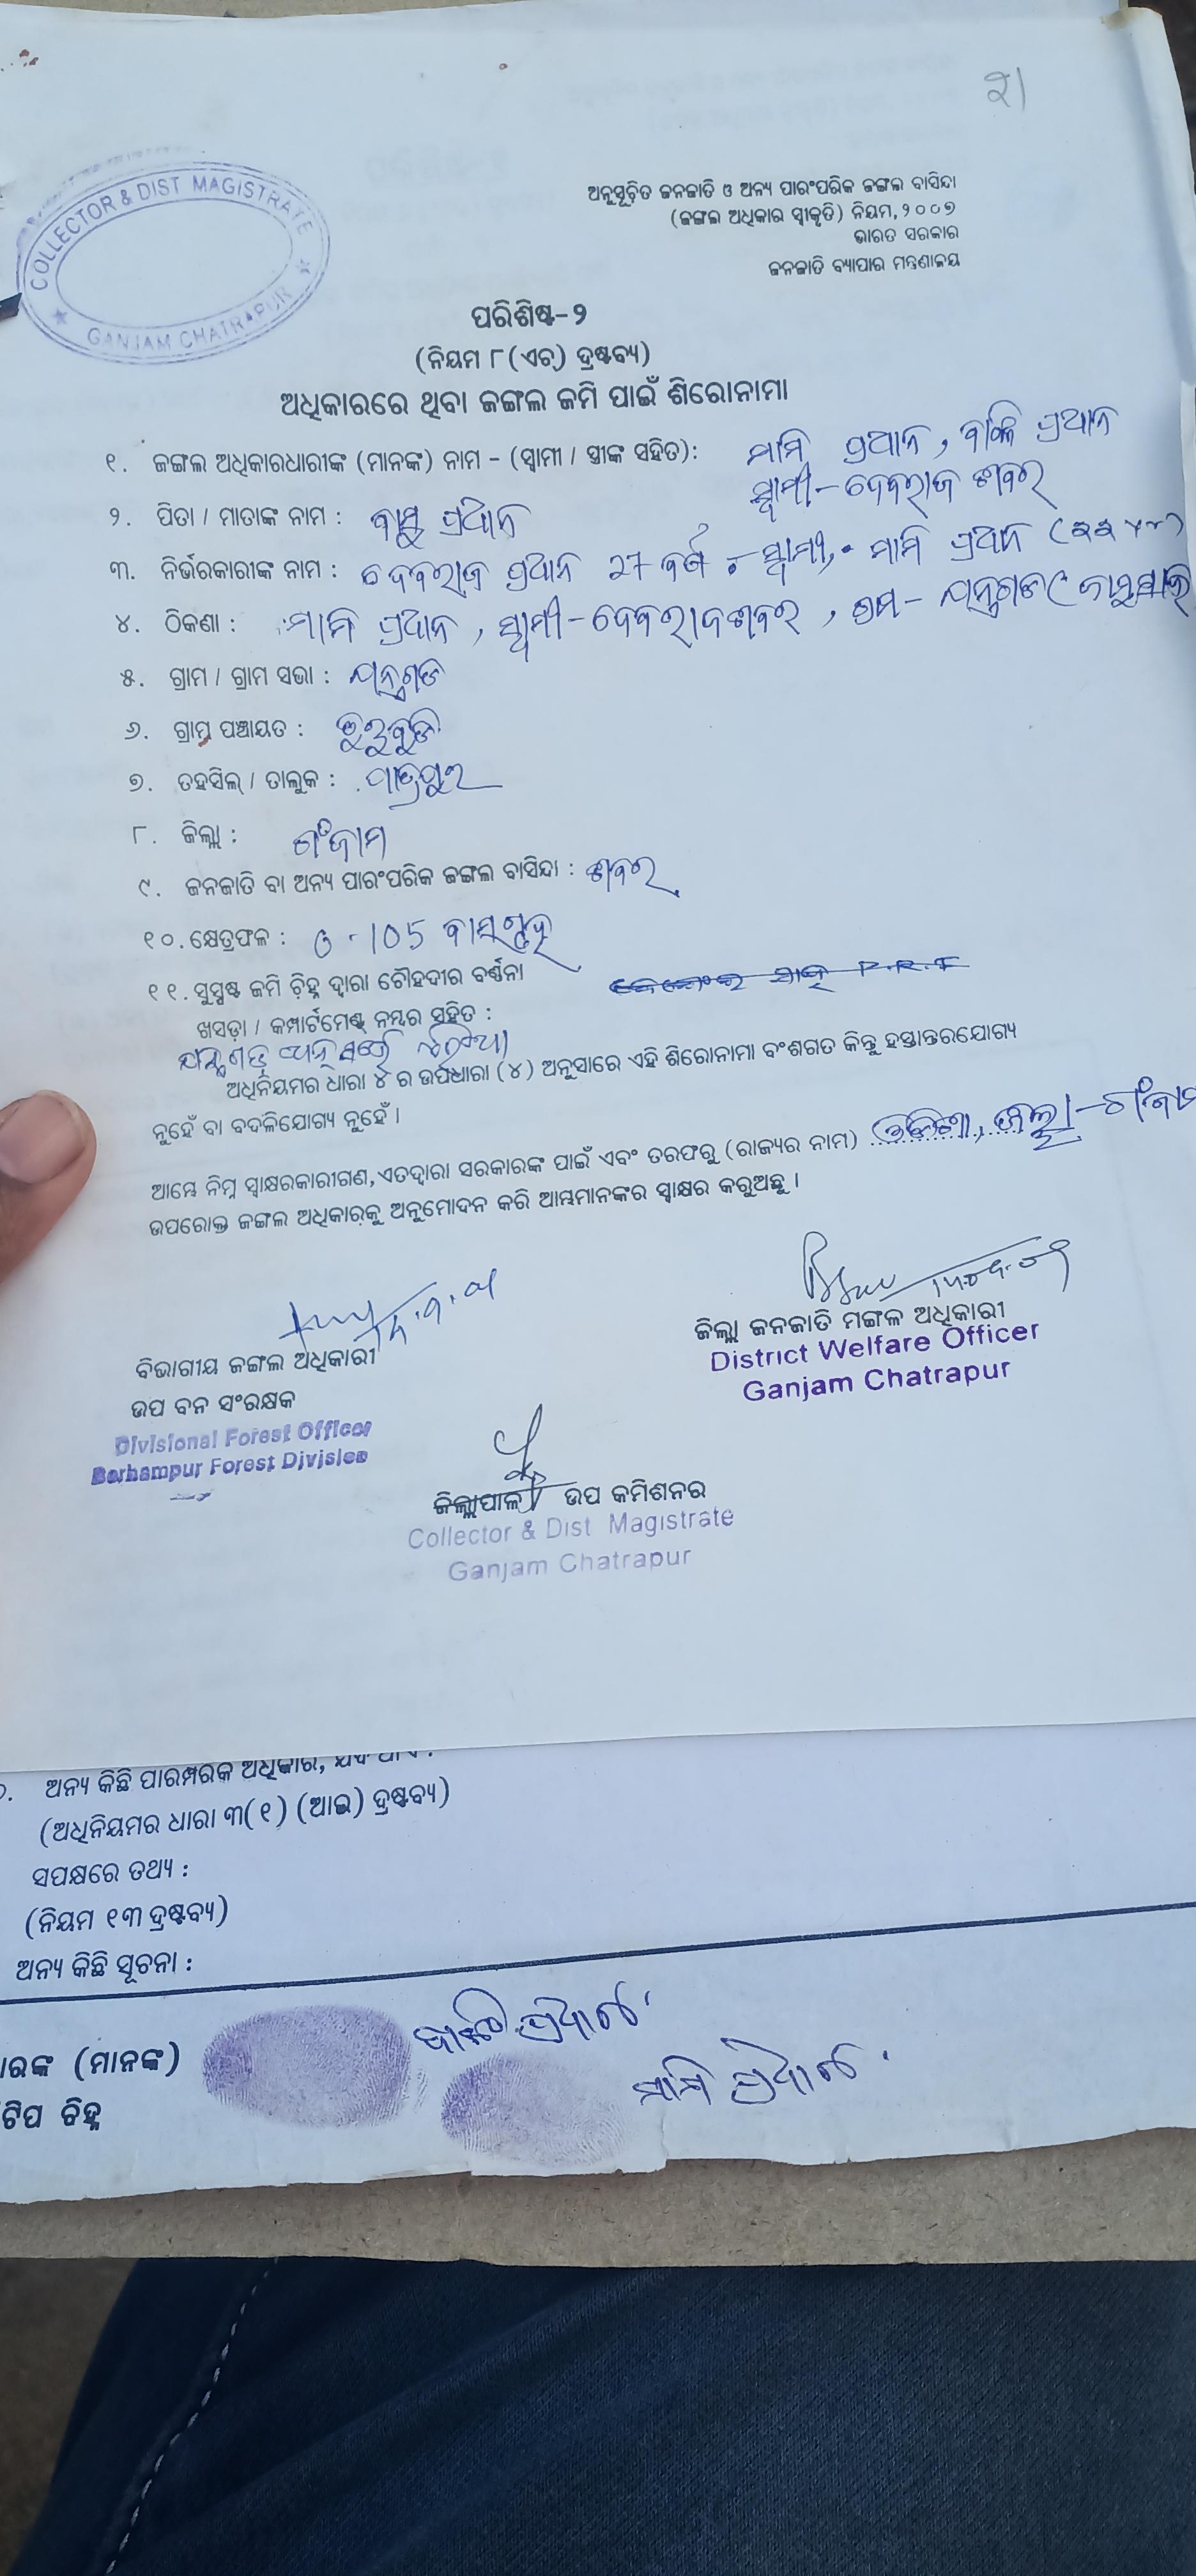 ୨।
COLLECTOR & DIST MAGISTRATE
GANJAM CHATRAPUR
ଅନୁସୂଚିତ ଜନଜାତି ଓ ଅନ୍ୟ ପାରଂପରିକ ଜଙ୍ଗଲ ବାସିନ୍ଦା
(ଜଙ୍ଗଲ ଅଧିକାର ସ୍ୱୀକୃତି) ନିୟମ, ୨୦୦୭
ଭାରତ ସରକାର
ଜନଜାତି ବ୍ୟାପାର ମନ୍ତ୍ରଣାଳୟ
ପରିଶିଷ୍ଟ-୨
(ନିୟମ ୮(ଏଚ୍) ଦ୍ରଷ୍ଟବ୍ୟ)
ଅଧିକାରରେ ଥିବା ଜଙ୍ଗଲ ଜମି ପାଇଁ ଶିରୋନାମା
୧. ଜଙ୍ଗଲ ଅଧିକାରଧାରୀଙ୍କ (ମାନଙ୍କ) ନାମ - (ସ୍ୱାମୀ / ସ୍ତ୍ରୀଙ୍କ ସହିତ): ମାମି ପ୍ରଧାନ, ପ୍ରଧାନ
ସ୍ୱାମୀ - ଦେବରାଜ ଶବର
୨. ପିତା / ମାତାଙ୍କ ନାମ : ବାସୁ ପ୍ରଧାନ
୩. ନିର୍ଭରକାରୀଙ୍କ ନାମ : ଦେବରାଜ ପ୍ରଧାନ 27 ବର୍ଷ ସ୍ୱାମୀ, ମାମି ପ୍ରଧାନ
୪. ଠିକଣା : ମାମି ପ୍ରଧାନ, ସ୍ୱାମୀ - ଦେବରାଜ ଶବର, ଗ୍ରାମ -
୫. ଗ୍ରାମ / ଗ୍ରାମ ସଭା :
୬. ଗ୍ରାମ ପଞ୍ଚାୟତ :
୭. ତହସିଲ୍ / ତାଲୁକ : ପାତ୍ରପୁର
୮. ଜିଲ୍ଲା : ଗଂଜାମ
୯. ଜନଜାତି ବା ଅନ୍ୟ ପାରଂପରିକ ଜଙ୍ଗଲ ବାସିନ୍ଦା : ଶବର
୧୦. କ୍ଷେତ୍ରଫଳ : 0.105 ବାସଗୃହ
୧୧. ସୁସ୍ପଷ୍ଟ ଜମି ଚିହ୍ନ ଦ୍ୱାରା ଚୌହଦୀର ବର୍ଣ୍ଣନା P.R.F
ଖସଡ଼ା / କମ୍ପାର୍ଟମେଣ୍ଟ ନମ୍ବର ସହିତ :
ଅଧିନିୟମର ଧାରା ୪ ର ଉପଧାରା (୪) ଅନୁସାରେ ଏହି ଶିରୋନାମା ବଂଶଗତ କିନ୍ତୁ ହସ୍ତାନ୍ତରଯୋଗ୍ୟ
ନୁହେଁ ବା ବଦଳିଯୋଗ୍ୟ ନୁହେଁ ।
ଆମ୍ଭେ ନିମ୍ନ ସ୍ୱାକ୍ଷରକାରୀଗଣ, ଏତଦ୍ଦ୍ୱାରା ସରକାରଙ୍କ ପାଇଁ ଏବଂ ତରଫରୁ (ରାଜ୍ୟର ନାମ) ଓଡିଶା, ଜିଲ୍ଲା - ଗଂଜାମ
ଉପରୋକ୍ତ ଜଙ୍ଗଲ ଅଧିକାରକୁ ଅନୁମୋଦନ କରି ଆମ୍ଭମାନଙ୍କର ସ୍ୱାକ୍ଷର କରୁଅଛୁ ।
ବିଭାଗୀୟ ଜଙ୍ଗଲ ଅଧିକାରୀ
ଉପ ବନ ସଂରକ୍ଷକ
Divisional Forest Officer
Berhampur Forest Division
ଜିଲ୍ଲା ଜନଜାତି ମଙ୍ଗଳ ଅଧିକାରୀ
District Welfare Officer
Ganjam Chatrapur
ଜିଲ୍ଲାପାଳ / ଉପ କମିଶନର
Collector & Dist Magistrate
Ganjam Chatrapur
ଅନ୍ୟ କିଛି ପାରମ୍ପରିକ ଅଧିକାର, ଯଦି ଥାଏ :
(ଅଧିନିୟମର ଧାରା ୩(୧) (ଆଇ) ଦ୍ରଷ୍ଟବ୍ୟ)
ସପକ୍ଷରେ ତଥ୍ୟ :
(ନିୟମ ୧୩ ଦ୍ରଷ୍ଟବ୍ୟ)
ଅନ୍ୟ କିଛି ସୂଚନା :
ାରଙ୍କ (ମାନଙ୍କ) ପ୍ରଧାନ
ଟିପ ଚିହ୍ନ ମାମି ପ୍ରଧାନ